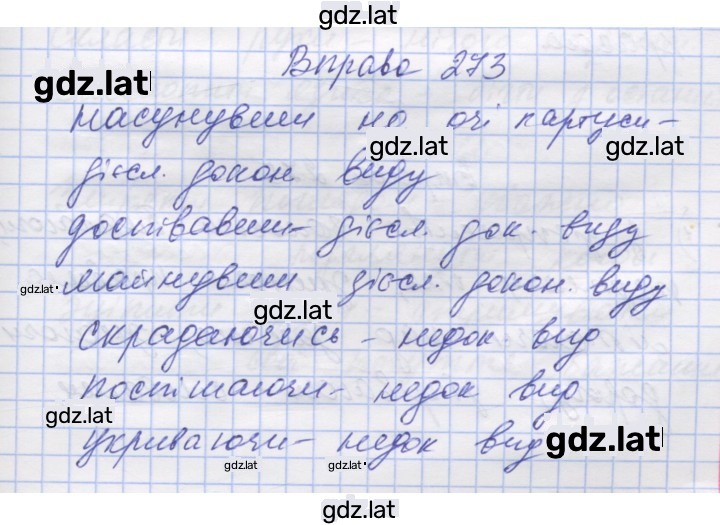 gdz.lat
Вправа 273
gdz.lat
насунувши на очі картузи-
gdz.lat gdz.lat
дієсл. докон виду
доспівавши- дієсл. док. виду
gdz.lat
майнувши дієсл. докон. виду
gdz.lat
скрадаючись - недок. вид
поспішаючи- недок вид
gdz.lat
укриваючи- недок вид
gdz.lat
gdz.lat gdz.lat
gdz.lat